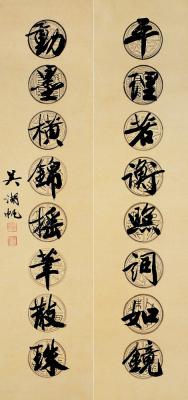 平理若衡照詞如鏡
動墨橫錦搖筆散珠
吳湖帆